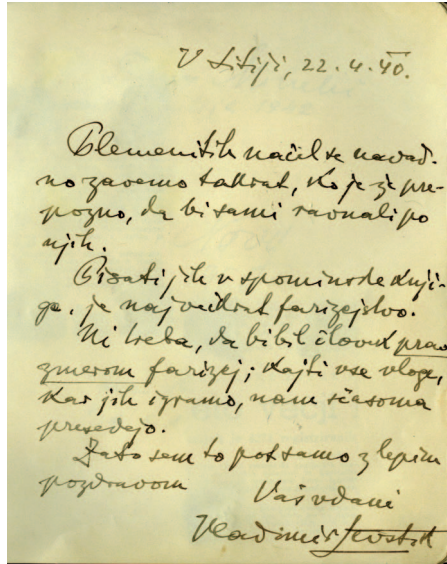 V Litiji, 22. 4. 40.
Plemenitih načel se navad-
no zavemo takrat, ko je že pre-
pozno, da bi sami ravnali po
njih.
Pisati jih v spominske knji-
ge, je največkrat farizejstvo.
Ni treba, da bi bil človek prav
zmerom farizej; kajti vse vloge,
kar jih igramo, nam sčasoma
presedajo.
Zato sem to pot samo z lepim
pozdravom Vaš vdani
Vladimir Levstik